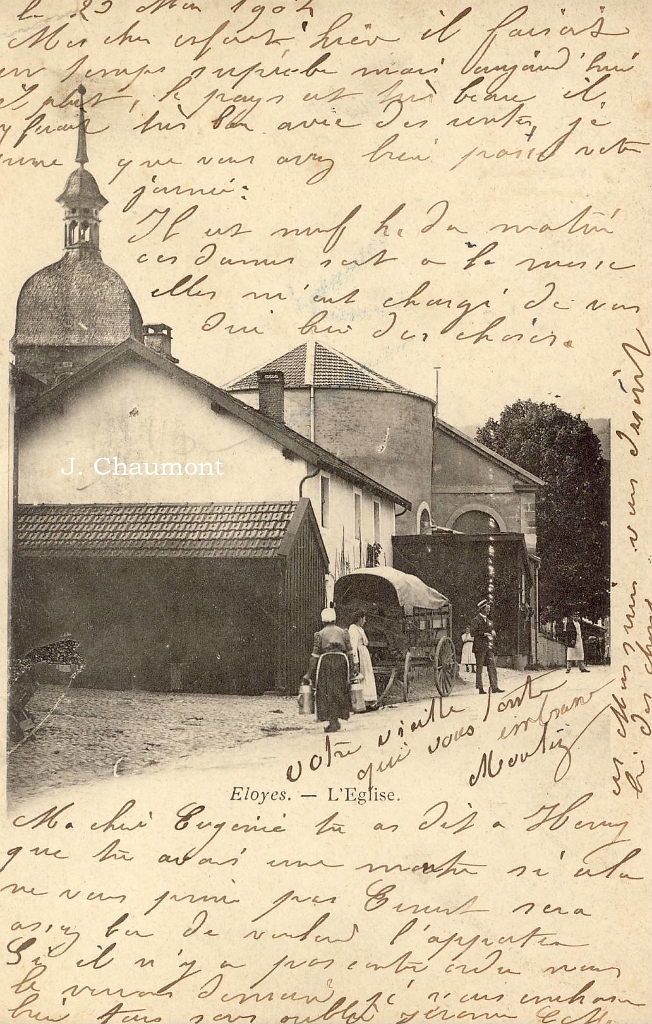 le 23 Mai 1904
Mes cher enfant hier il faisait
un temps superbe mais aujourd'hui
il pleut, le pays est très beau il
y fait très bon avec des
que vous avez bien passé votre
journée:
Il est neuf h. du matin
ces dames sont a la messe
elles m'ont chargé de vous
dire bien des choses.
J. Chaumont
votre vieille tante
qui vous embrasse
Eloyes. — L'Eglise.
Ma chère Eugénie tu as dit a Henry
que tu avais une montre si cela
ne vous prive pas Ernest sera
assez bon de vouloir l'apporter
Si il n'y a pas contre ordre nous
le verrons demain je vous embrasse
bien tous sans oublier